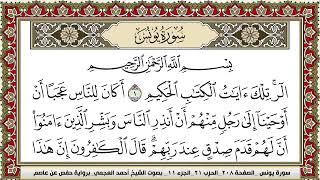 سُورَةُ يُونُسَ
بِسْمِ اللَّهِ الرَّحْمَٰنِ الرَّحِيمِ
الٓر ۚ تِلْكَ ءَايَٰتُ ٱلْكِتَٰبِ ٱلْحَكِيمِ ١ أَكَانَ لِلنَّاسِ عَجَبًا أَنْ
أَوْحَيْنَآ إِلَىٰ رَجُلٍ مِّنْهُمْ أَنْ أَنذِرِ ٱلنَّاسَ وَبَشِّرِ ٱلَّذِينَ ءَامَنُوٓا۟
أَنَّ لَهُمْ قَدَمَ صِدْقٍ عِندَ رَبِّهِمْ ۗ قَالَ ٱلْكَٰفِرُونَ إِنَّ هَٰذَا
سورة يونس الصفحة ٢٠٨ الحزب ٢١ الجزء ١١ بصوت الشيخ أحمد العجمي برواية حفص عن عاصم